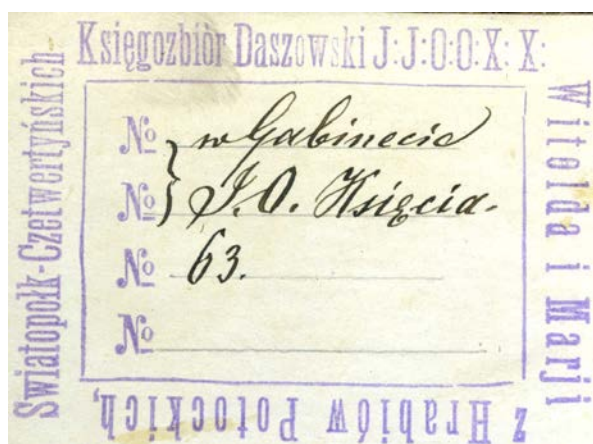 Księgozbiór Daszowski J:J:O:O:X: X:
Witolda i Marji
z Hrabiów Potockich,
Swiatopołk-Czetwertyńskich
№ w Gabinecie
№ J.O. Księcia.
№ 63.
№